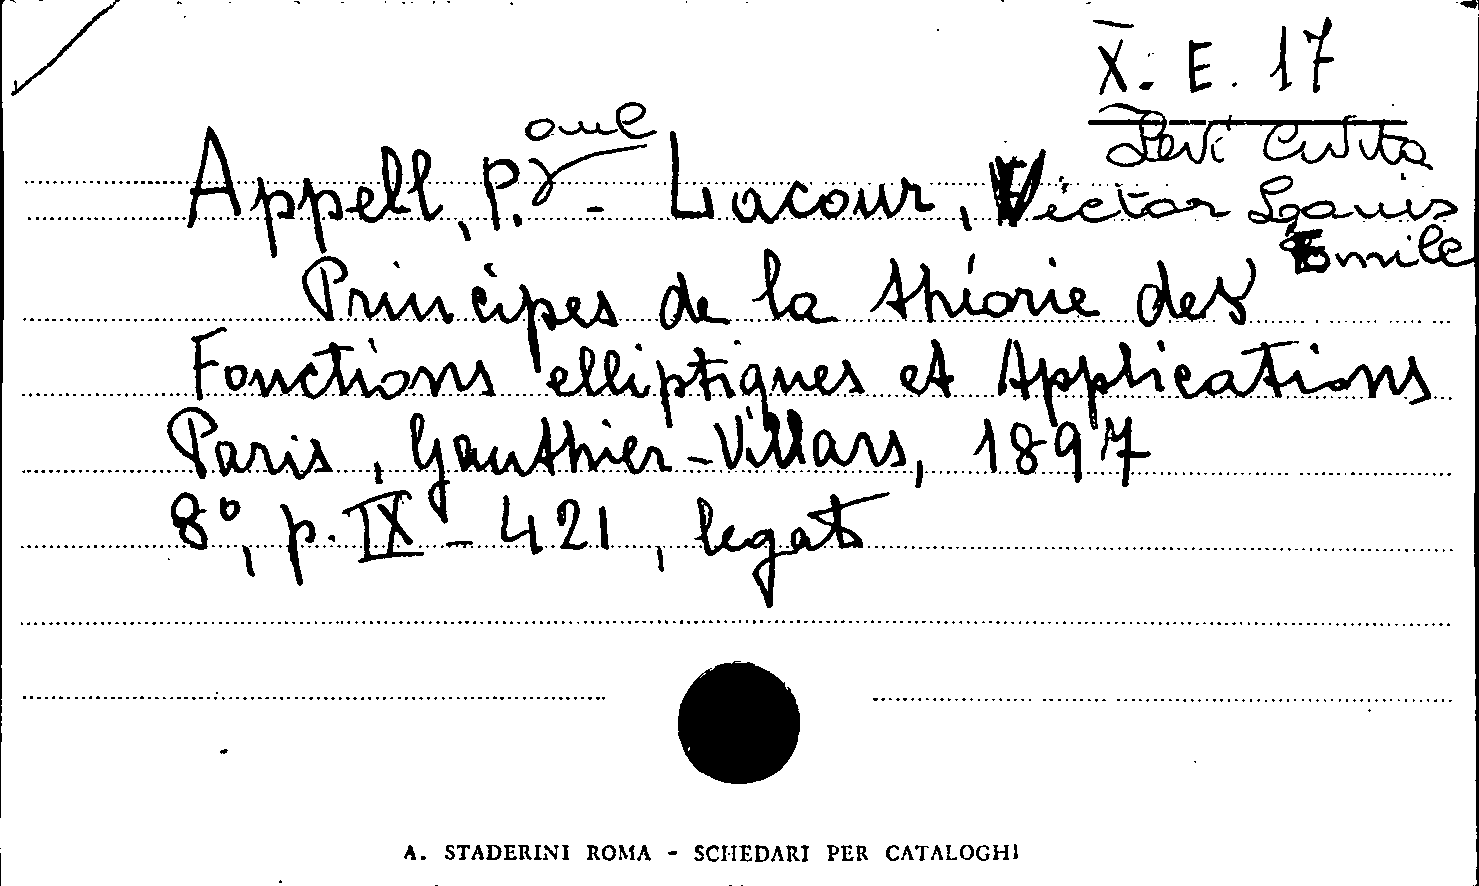 X. E. 17
Levi Civita
Appell, P.aul - Lacour, Victor Louis
Emile
Principes de la théorie des
Fonctions elliptiques et Applications
Paris, Gauthier-Villars, 1897
8°, p. IX - 421, legat
A. STADERINI ROMA - SCHEDARI PER CATALOGHI